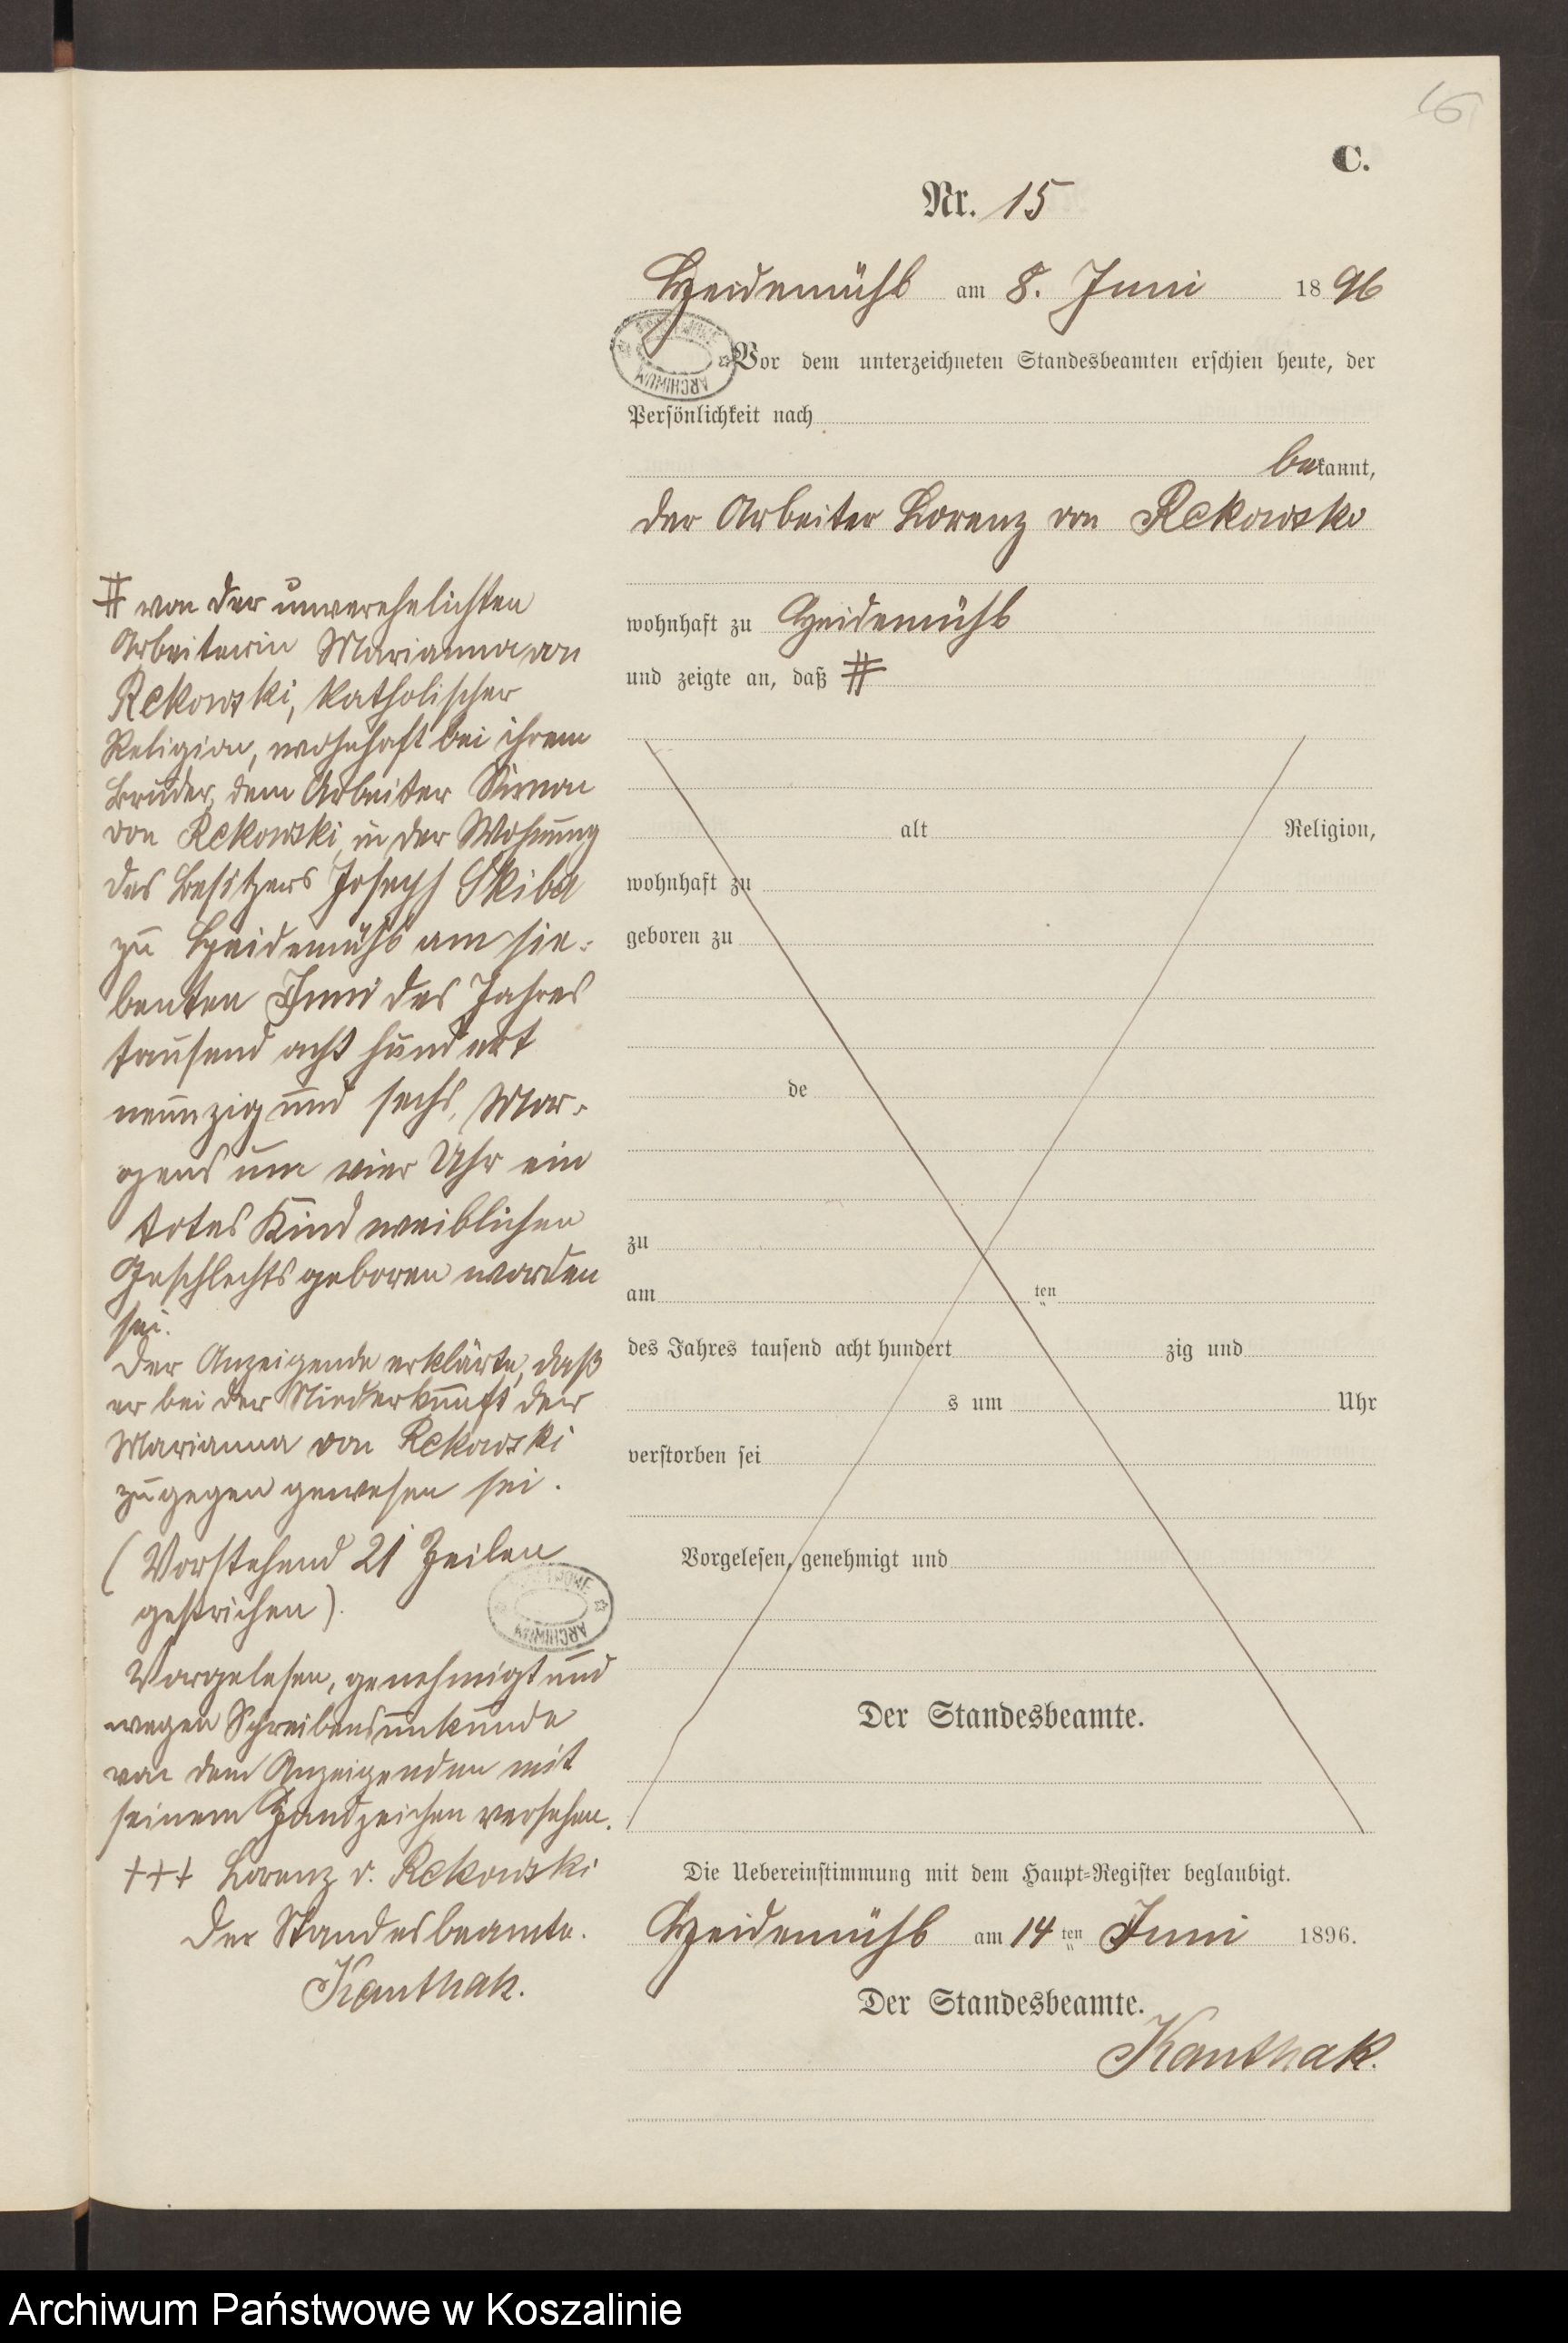 16
C.
Nr. 15
Heidemühl am 8. Juni 1896
Vor dem unterzeichneten Standesbeamten erschien heute, der
Persönlichkeit nach
bekannt,
der Arbeiter Lorenz von Rekowski
wohnhaft zu Heidemühl
und zeigte an, daß #
# von der unverehelichten
Arbeiterin Marianna von
Rekowski, katholischer
Religion, wohnhaft bei ihrem
Bruder, dem Arbeiter Simon
von Rekowski, in der Wohnung
des Besitzers Joseph Skiba
zu Heidemühl am sie-
benten Juni des Jahres
tausend acht hundert
neunzig und sechs, Mor-
gens um vier Uhr ein
totes Kind weiblichen
Geschlechts geboren worden
sei.
Der Anzeigende erklärte, daß
er bei der Niederkunft der
Marianna von Rekowski
zugegen gewesen sei.
(Vorstehend 21 Zeilen
gestrichen).
Vorgelesen, genehmigt und
wegen Schreibensunkunde
von dem Anzeigenden mit
seinem Handzeichen versehen.
+++ Lorenz v. Rekowski
Der Standesbeamte.
Kanthak.
alt Religion,
wohnhaft zu
geboren zu
de
zu
am ten
des Jahres tausend acht hundert zig und
s um Uhr
verstorben sei
Vorgelesen, genehmigt und
Der Standesbeamte.
Die Uebereinstimmung mit dem Haupt-Register beglaubigt.
Heidemühl am 14ten Juni 1896.
Der Standesbeamte.
Kanthak.
ARCHIWUM
ARCHIWUM
Archiwum Państwowe w Koszalinie